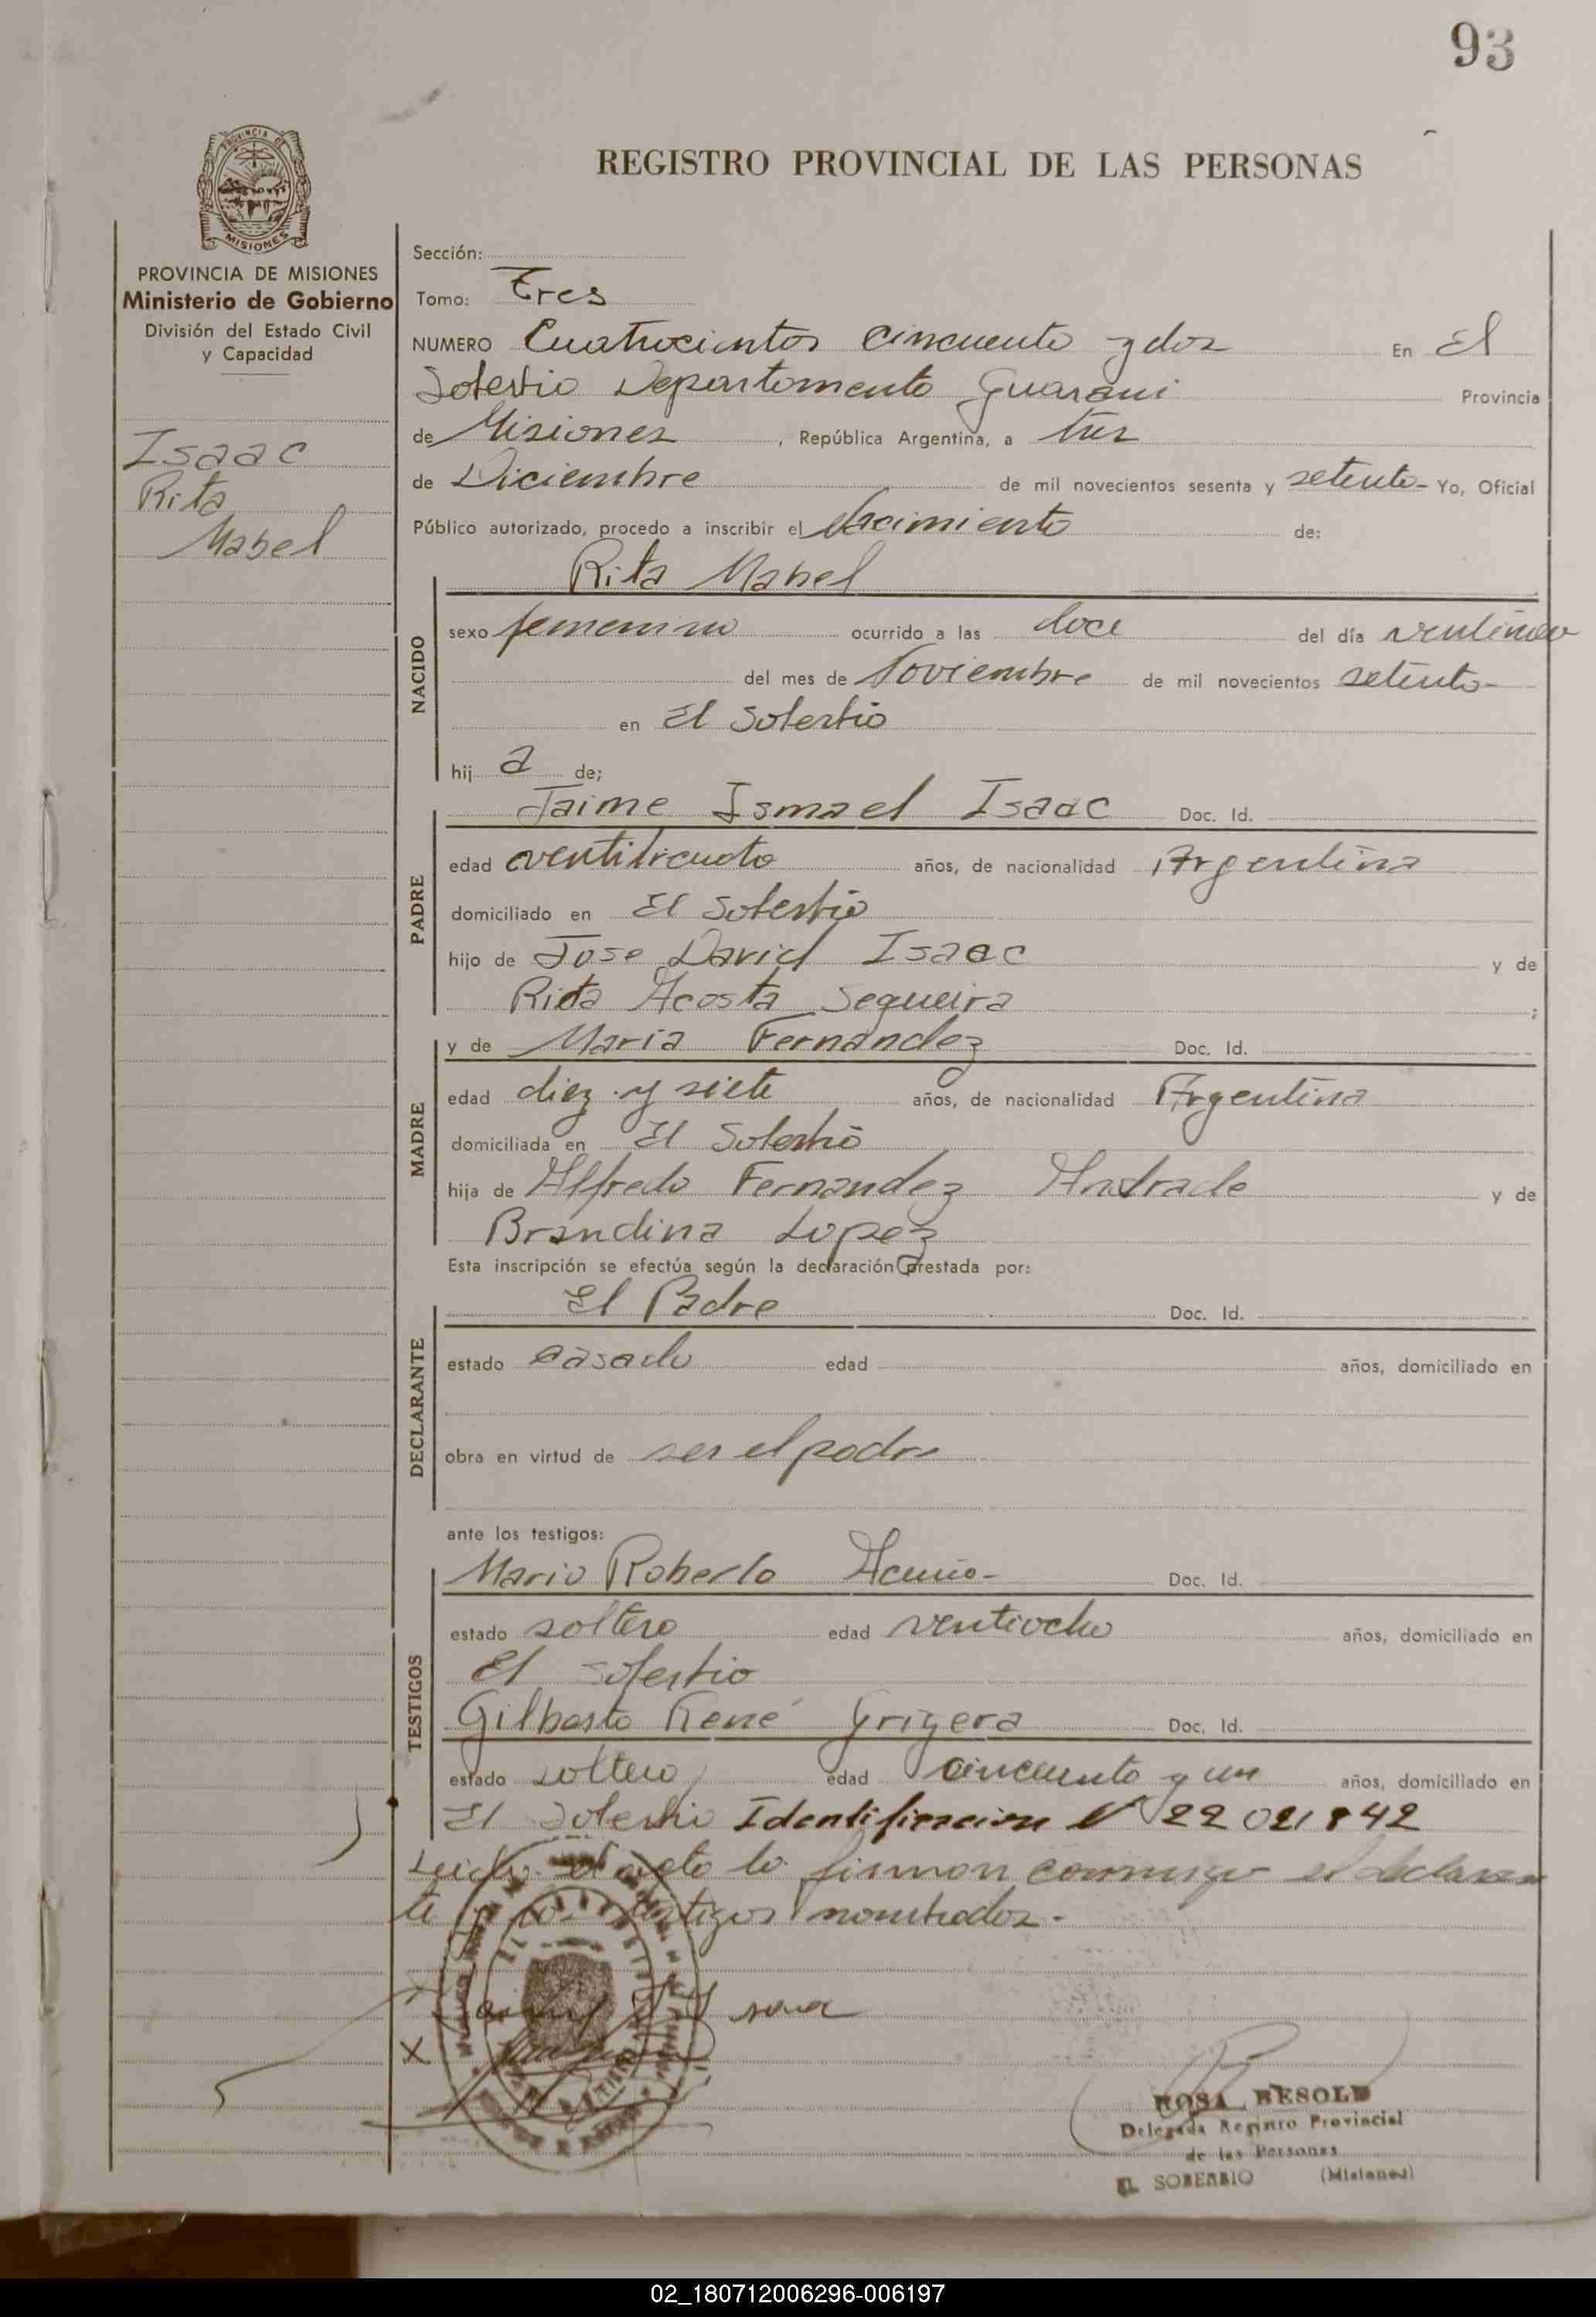 93
REGISTRO PROVINCIAL DE LAS PERSONAS
PROVINCIA DE
MISIONES
PROVINCIA DE MISIONES
Ministerio de Gobierno
División del Estado Civil
y Capacidad
Isaac
Rita
Mabel
Sección:
Tomo: Tres
NUMERO Cuatrocientos cincuenta y dos En El
Soberbio Departamento Guarani Provincia
de Misiones, República Argentina, a tres
de Diciembre de mil novecientos sesenta y setenta- Yo, Oficial
Público autorizado, procedo a inscribir el Nacimiento de:
Rita Mabel
NACIDO
sexo femenino ocurrido a las doce del día
del mes de Noviembre de mil novecientos setenta-
en El Soberbio
hij a de;
Jaime Ismael Isaac Doc. Id.
PADRE
edad años, de nacionalidad Argentina
domiciliado en El Soberbio
hijo de Jose David Isaac y de
Rita Acosta Sequeira ;
y de Maria Fernandez Doc. Id.
MADRE
edad diez y siete años, de nacionalidad Argentina
domiciliada en El Soberbio
hija de Alfredo Fernandez Andrade y de
Brandina Lopez
Esta inscripción se efectúa según la declaración prestada por:
El Padre Doc. Id.
DECLARANTE
estado casado edad años, domiciliado en
obra en virtud de ser el padre
ante los testigos:
Mario Roberto Acuña- Doc. Id.
TESTIGOS
estado soltero edad ventiocho años, domiciliado en
El Soberbio
Gilberto René Doc. Id.
estado soltero edad cincuenta y un años, domiciliado en
El Soberbio Identificacion Nº 22 021 842
Leido el acta lo firman conmigo el declaran
te y los testigos nombrados.-
ROSA BESOLD
Delegada Registro Provincial
de las Personas
EL SOBERBIO (Misiones)
02_180712006296-006197